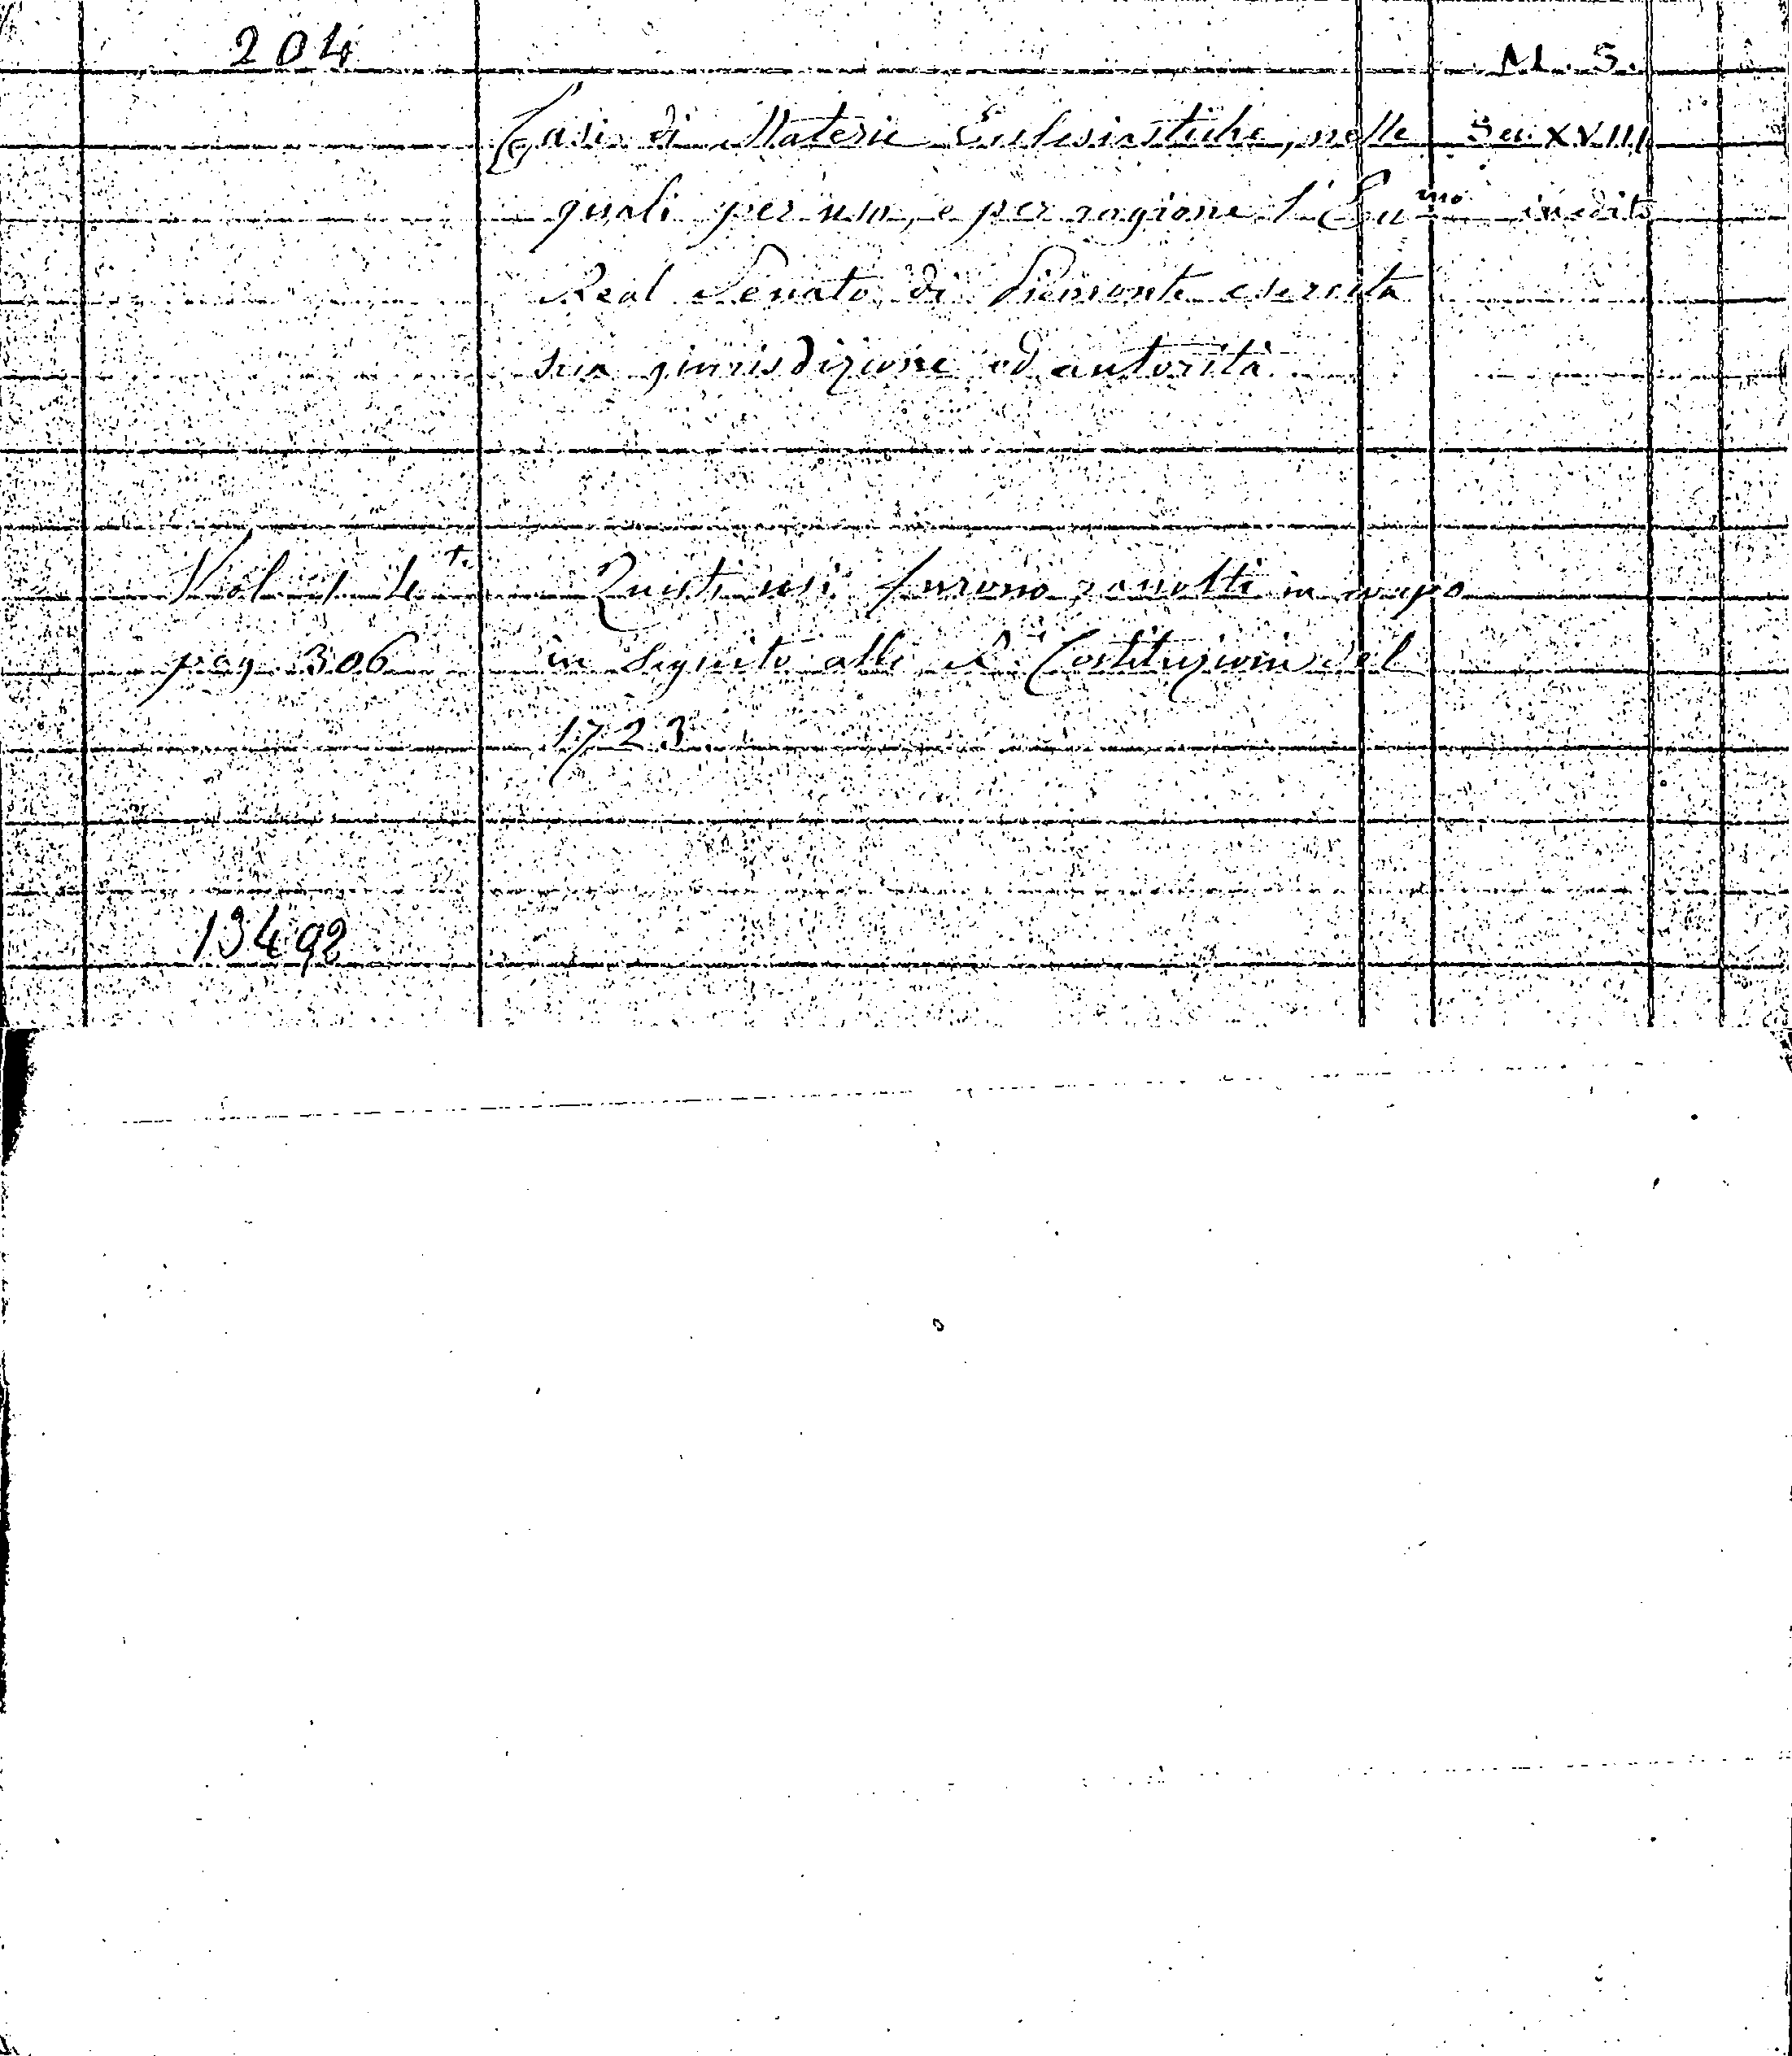 204
M. S.
Casi di Materie Ecclesiastiche, nelle Sec. XVIII
quali per uso, e per ragione l' Ecc.mo inedito
Real Senato di Piemonte esercita
sua giurisdizione ed autorità
Vol. 1. 4.to Questi usi furono raccolti in corpo
pag. 306 in seguito alle R. Costituzioni del
1723
13498